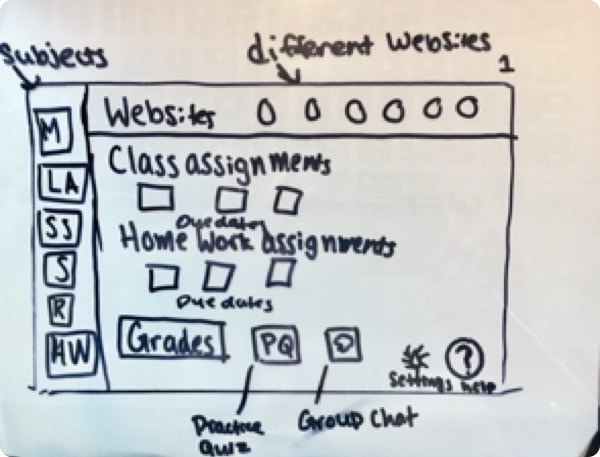 Subjects
different Websites
1
Websites
M
LA
SS
S
R
HW
Class assignments
Due dates
Home Work assignments
Due dates
Grades
PQ
Settings
?
help
Practice
Quiz
Group Chat